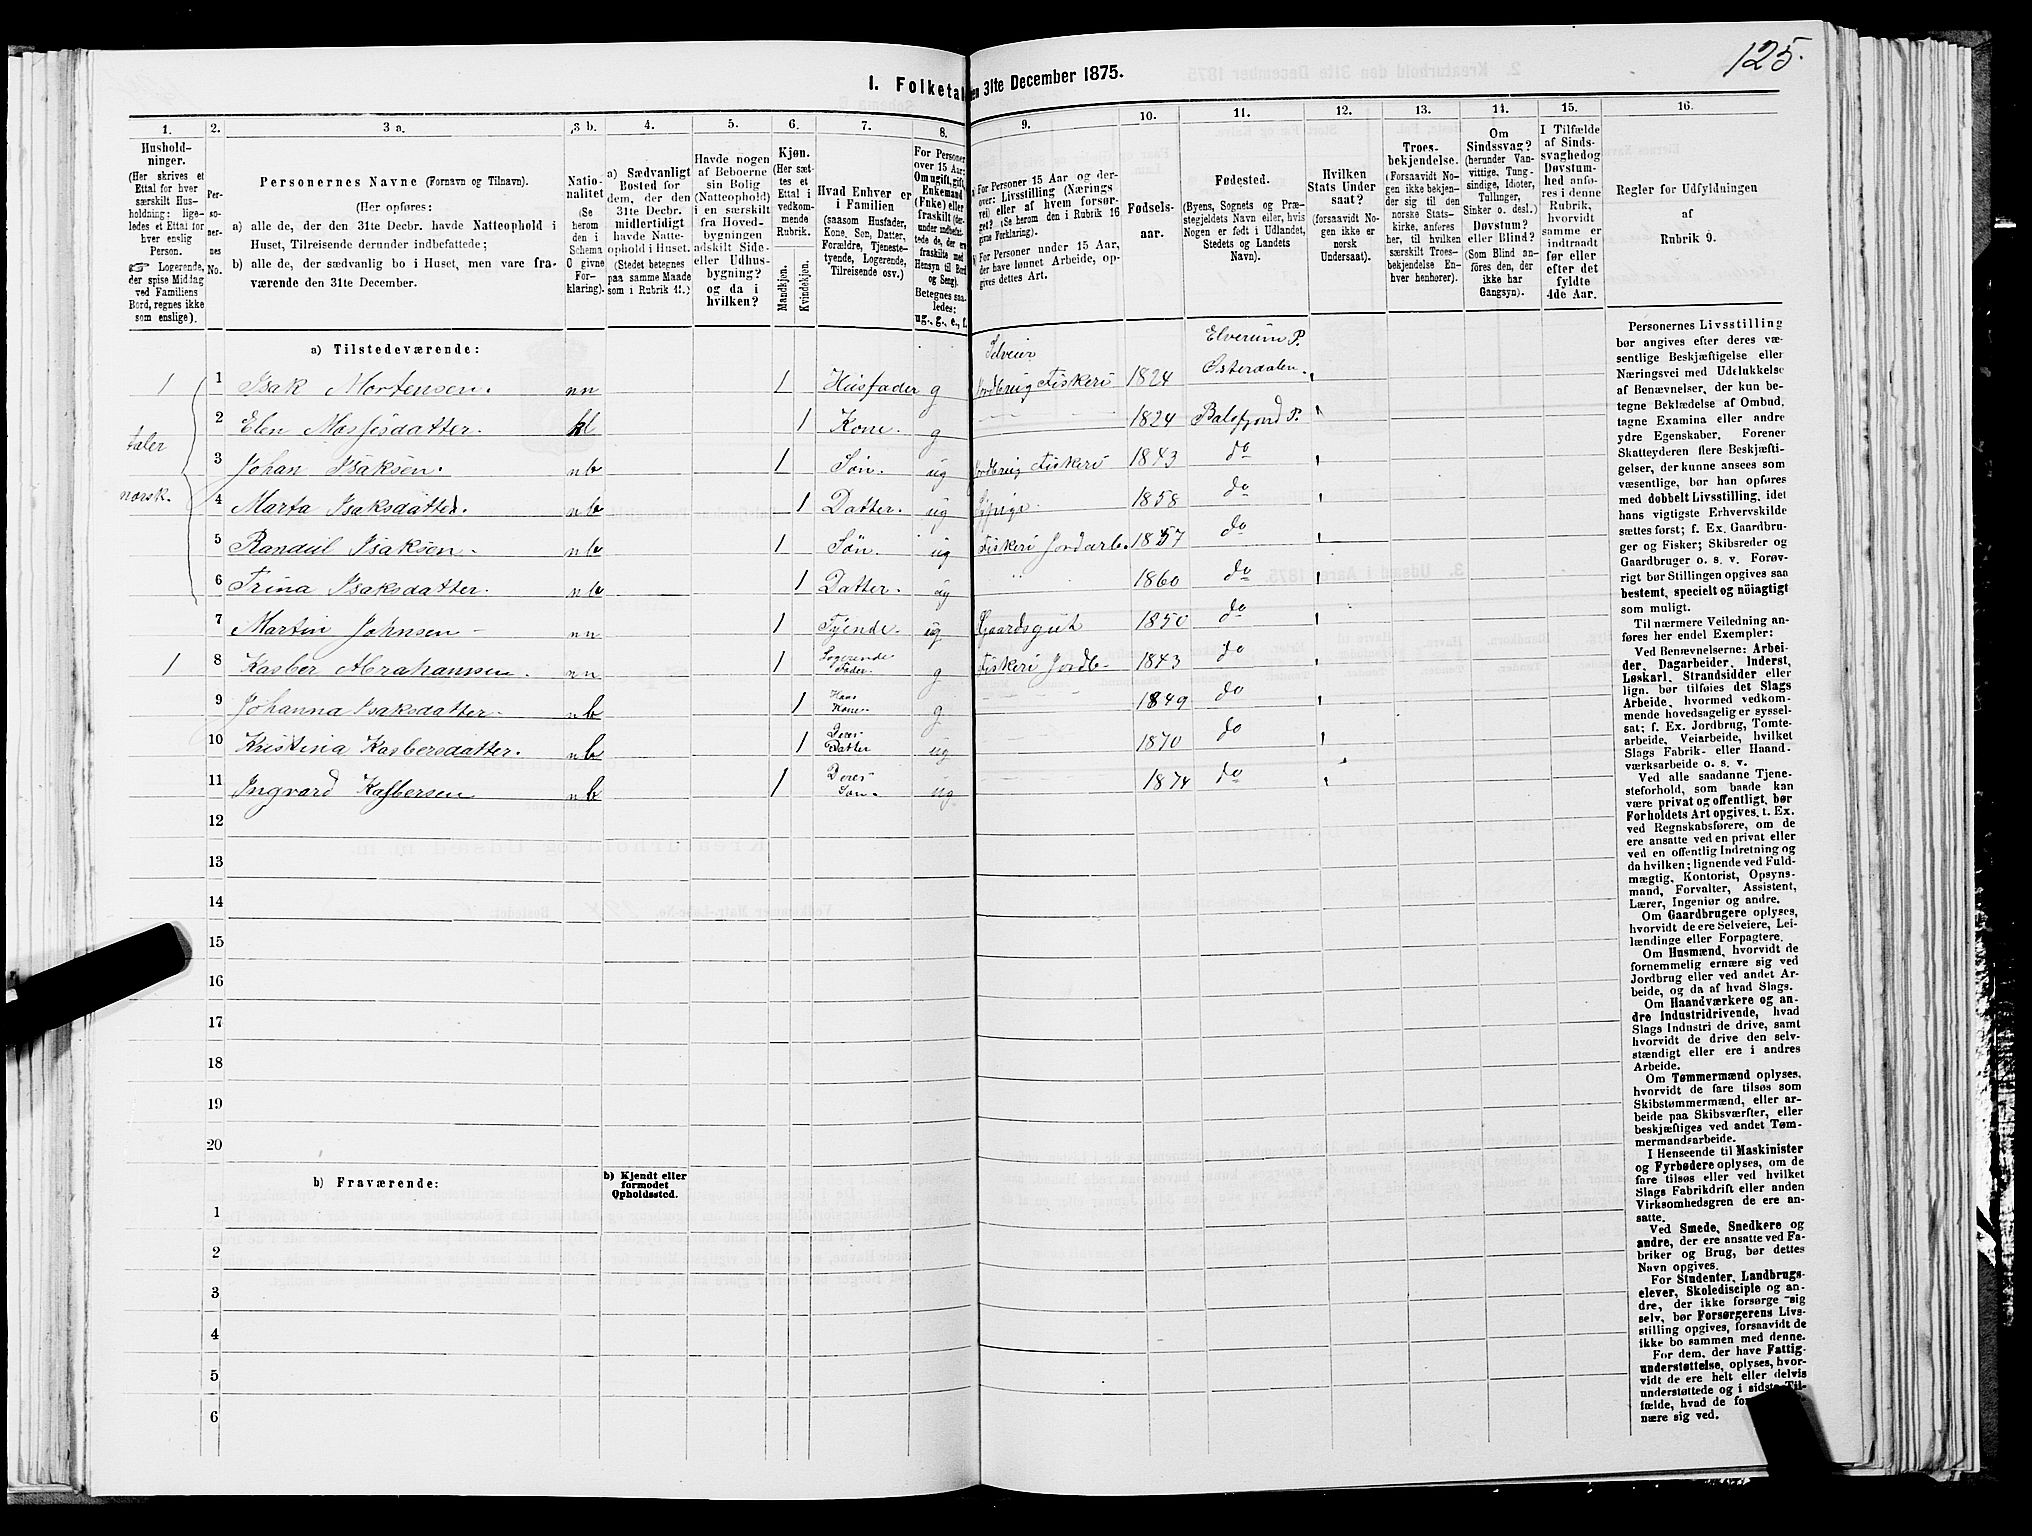 125.
I. Folketal
en 31te December 1875.
1.
2.
3 a.
3 b.
4.
5.
6.
7.
8.
9.
10.
11.
12.
13.
14.
15.
16.
Hushold-
ninger.
(Her skrives et
Ettal for hver
særskilt Hus-
holdning; lige-
ledes et Ettal for
hver enslig
Person.
☞ Logerende,
der spise Middag
ved Familiens
Bord, regnes ikke
som enslige).
Per-
so-
ner-
nes
No.
Personernes Navne (Fornavn og Tilnavn).
(Her opføres:
a) alle de, der den 31te Decbr. havde Natteophold i
Huset, Tilreisende derunder indbefattede;
b) alle de, der sædvanlig bo i Huset, men vare fra-
værende den 31te December.
Natio-
nalitet
(Se
herom
den i
Schema
O givne
For-
klaring).
a) Sædvanligt
Bosted for
dem, der den
31te Decbr.
midlertidigt
havde Natte-
ophold i Huset.
(Stedet betegnes
paa samme Maade
som i Rubrik 11.)
Havde nogen
af Beboerne
sin Bolig
(Natteophold)
i en særskilt
fra Hoved-
bygningen
adskilt Side-
eller Udhus-
bygning?
og da i
hvilken?
Kjøn.
(Her sæt-
tes et
Ettal i
vedkom-
mende
Rubrik.
Mandkjøn.
Kvindekjøn.
Hvad Enhver er
i Familien
(saasom Husfader,
Kone, Søn, Datter,
Forældre, Tjeneste-
tyende, Logerende,
Tilreisende osv.)
For Personer
over 15 Aar:
Om ugift, gift,
Enkemand
(Enke) eller
fraskilt (der-
under indbefat-
tede de, der ere
fraskilte med
Hensyn til Bord
og Seng).
Betegnes saa-
ledes:
ug., g., e., f.
a For Personer 15 Aar og der-
over: Livsstilling (Nærings-
vei) eller af hvem forsør-
get? (Se herom den i Rubrik 16
givne Forklaring).
For Personer under 15 Aar,
der have lønnet Arbeide, op-
gives dettes Art.
Fødsels-
aar.
Fødested.
(Byens, Sognets og Præ-
stegjeldets Navn eller, hvis
Nogen er født i Udlandet,
Stedets og Landets
Navn).
Hvilken
Stats Under
saat?
(forsaavidt No-
gen ikke er
norsk
Undersaat).
Troes-
bekjendelse.
(Forsaavidt No-
gen ikke bekjen-
der sig til den
norske Stats-
kirke, anføres
her, til hvilken
særskilt Troes-
bekjendelse En-
hver henhører).
Om
Sindssvag?
(herunder Van-
vittige, Tung-
sindige, Idioter,
Tullinger,
Sinker o. desl.)
Døvstum?
eller Blind?
(Som Blind an-
føres den, der
ikke har
Gangsyn).
I Tilfælde
af Sinds-
svaghed og
Døvstum-
hed anfø-
res i denne
Rubrik,
hvorvidt
samme er
indtraadt
før eller
efter det
fyldte
4de Aar.
Regler for Udfyldningen
af
Rubrik 9.
a) Tilstedeværende:
1 1 Isak Mortensen. nn 1 Husfader g Selveier Jordbrug Fiskeri 1824 Elverum P. Østerdalen.
2 Elen Mosfesdatter. kl 1 Kone. g 1824 Balsfjord P.
taler
3 Johan Isaksen. nb 1 Søn. ug Jordbrug Fiskeri 1843 do
norsk.
4 Marta Isaksdatter. nb 1 Datter. ug 1858 do
5 Randul Isaksen. nb 1 Søn. ug Fiskeri Jordarb. 1857 do
6 Trina Isaksdatter. nb 1 Datter. ug 1860 do
7 Martin Johnsen nn 1 Tyende. ug Gaardsgut 1850 do
1 8 Kasber Abrahamsen. nn 1 Logerende Fader. g Fiskeri Jordb. 1843 do
9 Johanna Isaksdatter. nb 1 Hans Kone. g 1849 do
10 Kristina Kasbersdatter. nb 1 Deres Datter ug 1870 do
11 Ingvard Kasbersen nb 1 Deres Søn. ug. 1874 do
12
13
14
15
16
17
18
19
20
b) Fraværende:
b) Kjendt eller
formodet
Opholdssted.
1
2
3
4
5
6
Personernes Livsstilling
bør angives efter deres væ-
sentlige Beskjæftigelse eller
Næringsvei med Udelukkelse
af Benævnelser, der kun be-
tegne Beklædelse af Ombud,
tagne Examina eller andre
ydre Egenskaber. Forener
Skatteyderen flere Beskjæfti-
gelser, der kunne ansees som
væsentlige, bør han opføres
med dobbelt Livsstilling, idet
hans vigtigste Erhvervskilde
sættes først; f. Ex. Gaardbru-
ger og Fisker; Skibsreder og
Gaardbruger o. s. v. Forøv-
rigt bør Stillingen opgives saa
bestemt, specielt og nöiagtigt
som muligt.
Til nærmere Veiledning an-
føres her endel Exempler:
Ved Benævnelserne: Arbei-
der, Dagarbeider, Inderst,
Løskarl, Strandsidder eller
lign. bør tilføies det Slags
Arbeide, hvormed vedkom-
mende hovedsagelig er syssel-
sat; f. Ex. Jordbrug, Tomte-
arbeide, Veiarbeide, hvilket
Slags Fabrik- eller Haand-
værksarbeide o. s. v.
Ved alle saadanne Tjene-
steforhold, som baade kan
være privat og offentligt, bør
Forholdets Art opgives, t. Ex.
ved Regnskabsførere, om de
ere ansatte ved en privat eller
ved en offentlig Indretning og
da hvilken; lignende ved Fuld-
mægtig, Kontorist, Opsyns-
mand, Forvalter, Assistent,
Lærer, Ingeniør og andre.
Om Gaardbrugere oplyses,
hvorvidt de ere Selveiere, Lei-
lændinge eller Forpagtere.
Om Husmænd, hvorvidt de
fornemmelig ernære sig ved
Jordbrug eller ved andet Ar-
beide, og da af hvad Slags.
Om Haandværkere og an-
dre Industridrivende, hvad
Slags Industri de drive, samt
hvorvidt de drive den selv-
stændigt eller ere i andres
Arbeide.
Om Tømmermænd oplyses,
hvorvidt de fare tilsøs som
Skibstømmermænd, eller ar-
beide paa Skibsværfter, eller
beskjæftiges ved andet Tøm-
mermandsarbeide.
I Henseende til Maskinister
og Fyrbødere oplyses, om de
fare tilsøs eller ved hvilket
Slags Fabrikdrift eller anden
Virksomhedsgren de ere an-
satte.
Ved Smede, Snedkere og
andre, der ere ansatte ved Fa-
briker og Brug, bør dettes
Navn opgives.
For Studenter, Landbrugs-
elever, Skoledisciple og an-
dre, der ikke forsørge sig
selv, bør Forsørgerens Livs-
stilling opgives, forsaavidt de
ikke bo sammen med denne.
For dem, der have Fattig-
understøttelse, oplyses, hvor-
vidt de ere helt eller delvis
understøttede og i sidste Til-
fælde, hvad de for
nære sig ved.